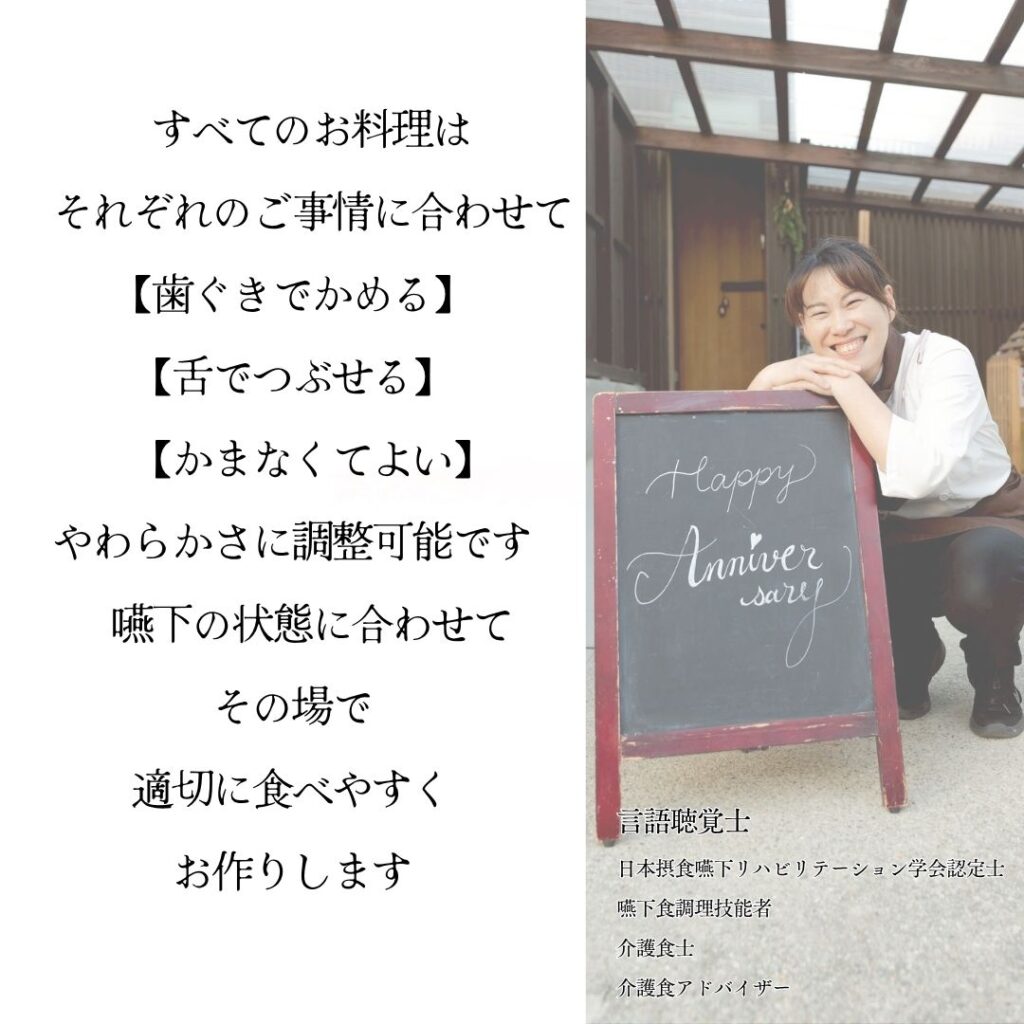 すべてのお料理は
それぞれのご事情に合わせて
【歯ぐきでかめる】
【舌でつぶせる】
【かまなくてよい】
やわらかさに調整可能です
嚥下の状態に合わせて
その場で
適切に食べやすく
お作りします
Happy
Anniver
sary
言語聴覚士
日本摂食嚥下リハビリテーション学会認定士
嚥下食調理技能者
介護食士
介護食アドバイザー